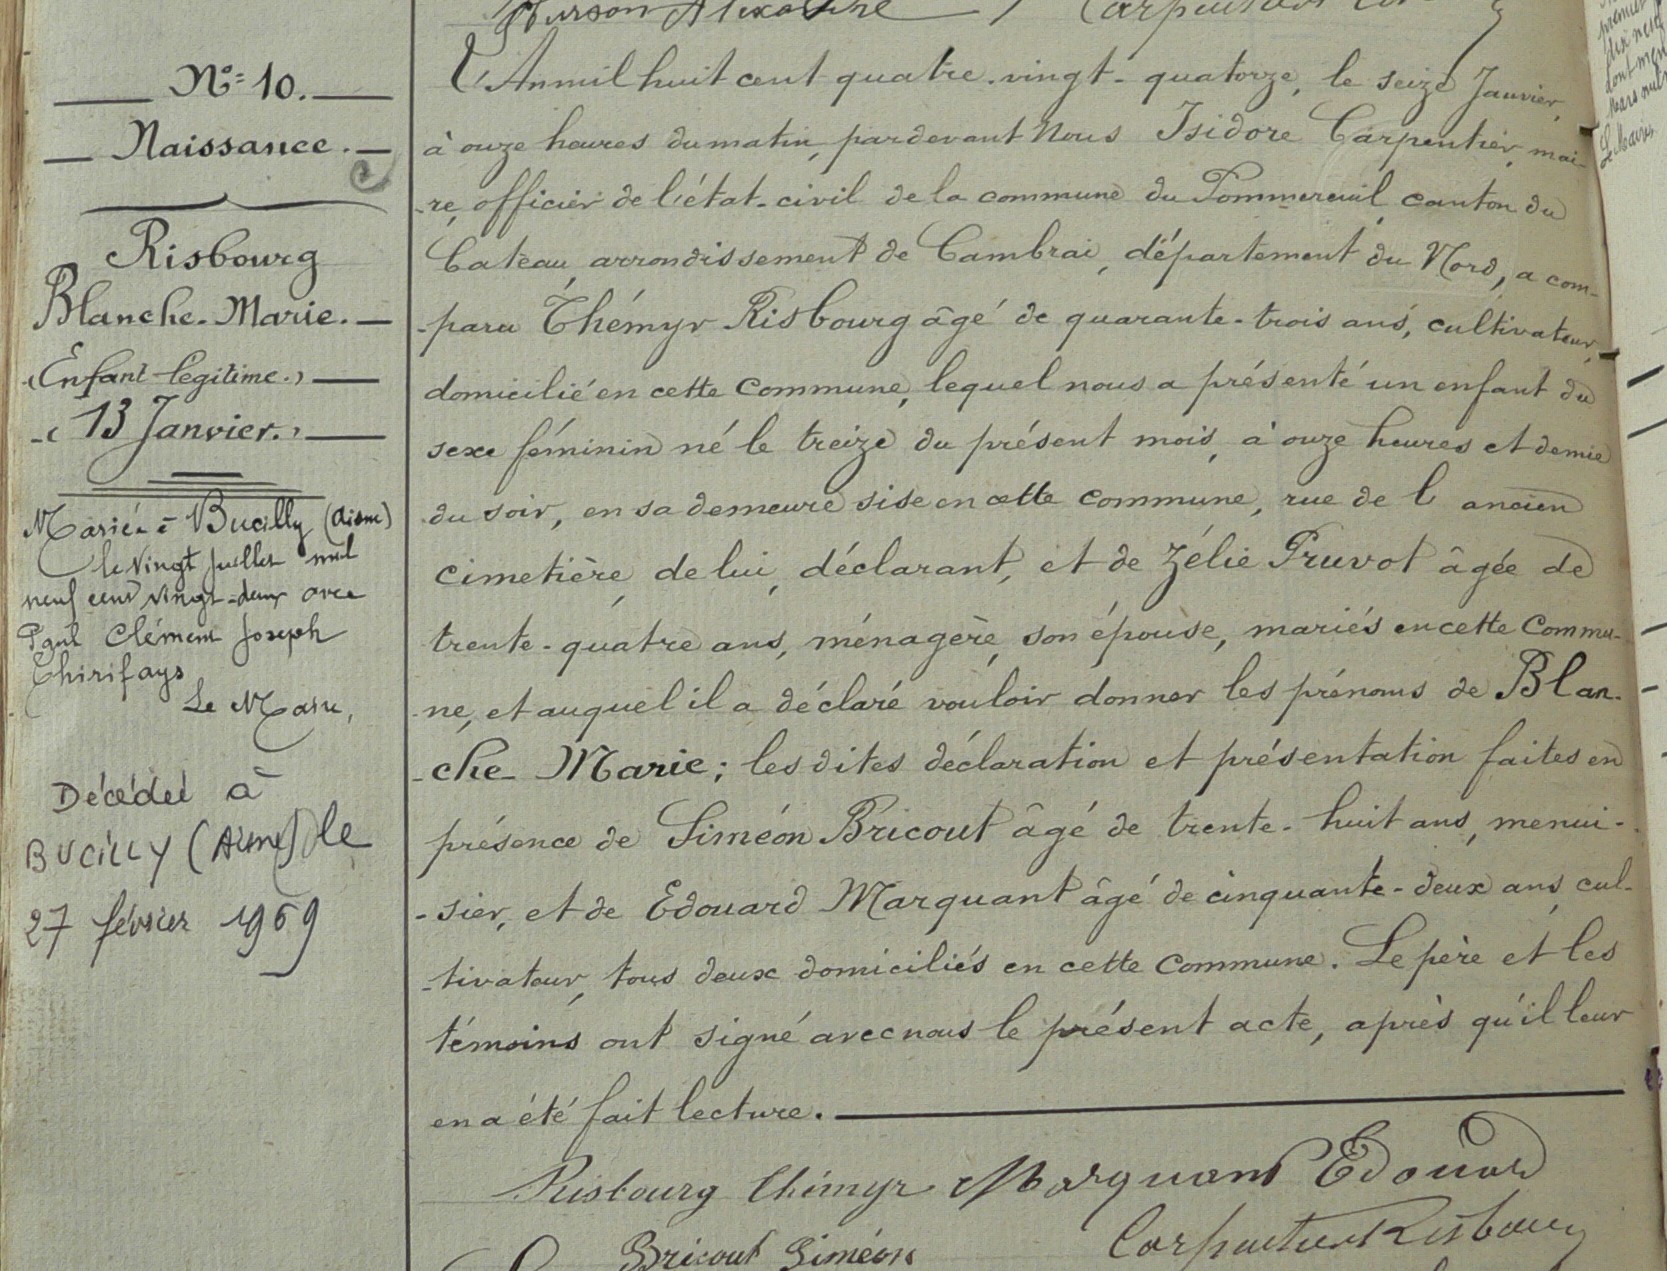 Carpentier
N° 10.
Naissance.
Risbourg
Blanche-Marie.
(Enfant légitime.)
13 Janvier.
Mariée à Bucilly (Aisne)
le vingt juillet mil
neuf cent vingt-deux avec
Paul Clément Joseph
Thirifays
Le Maire,
Décédée à
BUCILLY (Aisne) le
27 février 1969
L'An mil huit cent quatre-vingt-quatorze, le seize Janvier,
à onze heures du matin, pardevant Nous Isidore Carpentier, mai-
-re, officier de l'état-civil de la commune du Pommereuil, canton du
Cateau, arrondissement de Cambrai, département du Nord, a com-
-paru Thémyr Risbourg âgé de quarante-trois ans, cultivateur,
domicilié en cette commune, lequel nous a présenté un enfant du
sexe féminin né le treize du présent mois, à onze heures et demie
du soir, en sa demeure sise en cette commune, rue de l'ancien
cimetière, de lui, déclarant, et de Zélie Pruvot âgée de
trente-quatre ans, ménagère, son épouse, mariés en cette commu-
-ne, et auquel il a déclaré vouloir donner les prénoms de Blan-
-che Marie; les dites déclaration et présentation faites en
présence de Siméon Bricout âgé de trente-huit ans, menui-
-sier, et de Edouard Marquant âgé de cinquante-deux ans, cul-
-tivateur, tous deux domiciliés en cette commune. Le père et les
témoins ont signé avec nous le présent acte, après qu'il leur
en a été fait lecture.
Risbourg Thémyr Marquant Edouard
Bricout Siméon Carpentier Risbourg
Le Maire